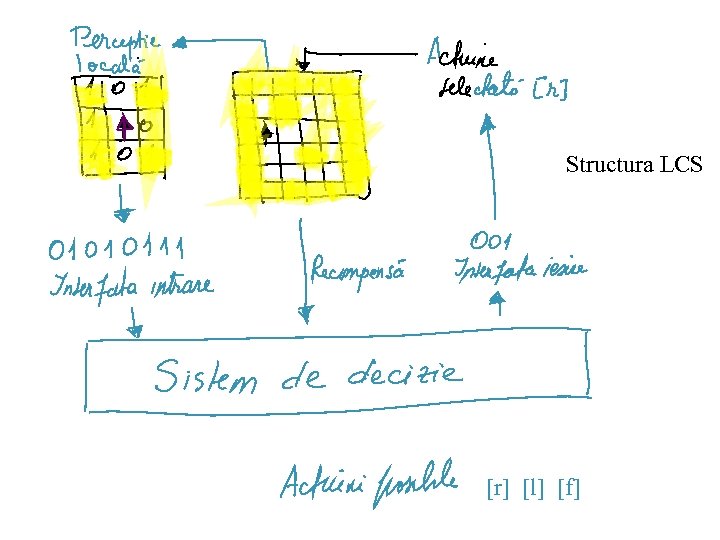 Perceptie
locală
Actiune
selectată [r]
0
0
0
Structura LCS
01010111
Interfata intrare
Recompensă
001
Interfata iesire
Sistem de decizie
Actiuni posibile [r] [l] [f]